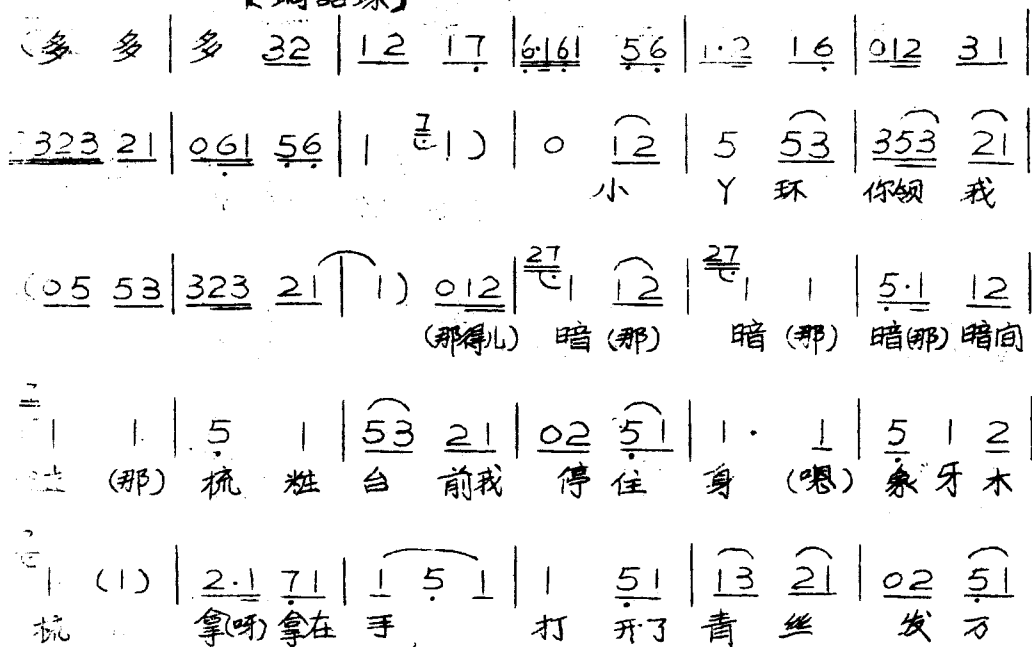 (多 多 | 多 32 | 12 17 | 6·161 56 | 1·2 16 | 012 31 |
323 21 | 061 56 | 1 1) | 0 12 | 5 53 | 353 21 |
小 丫 环 你领 我
(05 53 | 323 21 | 1) 012 | 27 1 12 | 27 1 1 | 5·1 12 |
(那得儿) 暗 (那) 暗 (那) 暗(那) 暗间
1 1 | 5 1 | 53 21 | 02 51 | 1· 1 | 5 1 2 |
(那) 梳 妆 台 前我 停 住 身 (嗯) 象 牙 木
1 (1) | 2·1 71 | 1 5 1 | 1 51 | 13 21 | 02 51 |
梳 拿(呀) 拿在 手 打 开了 青 丝 发 万